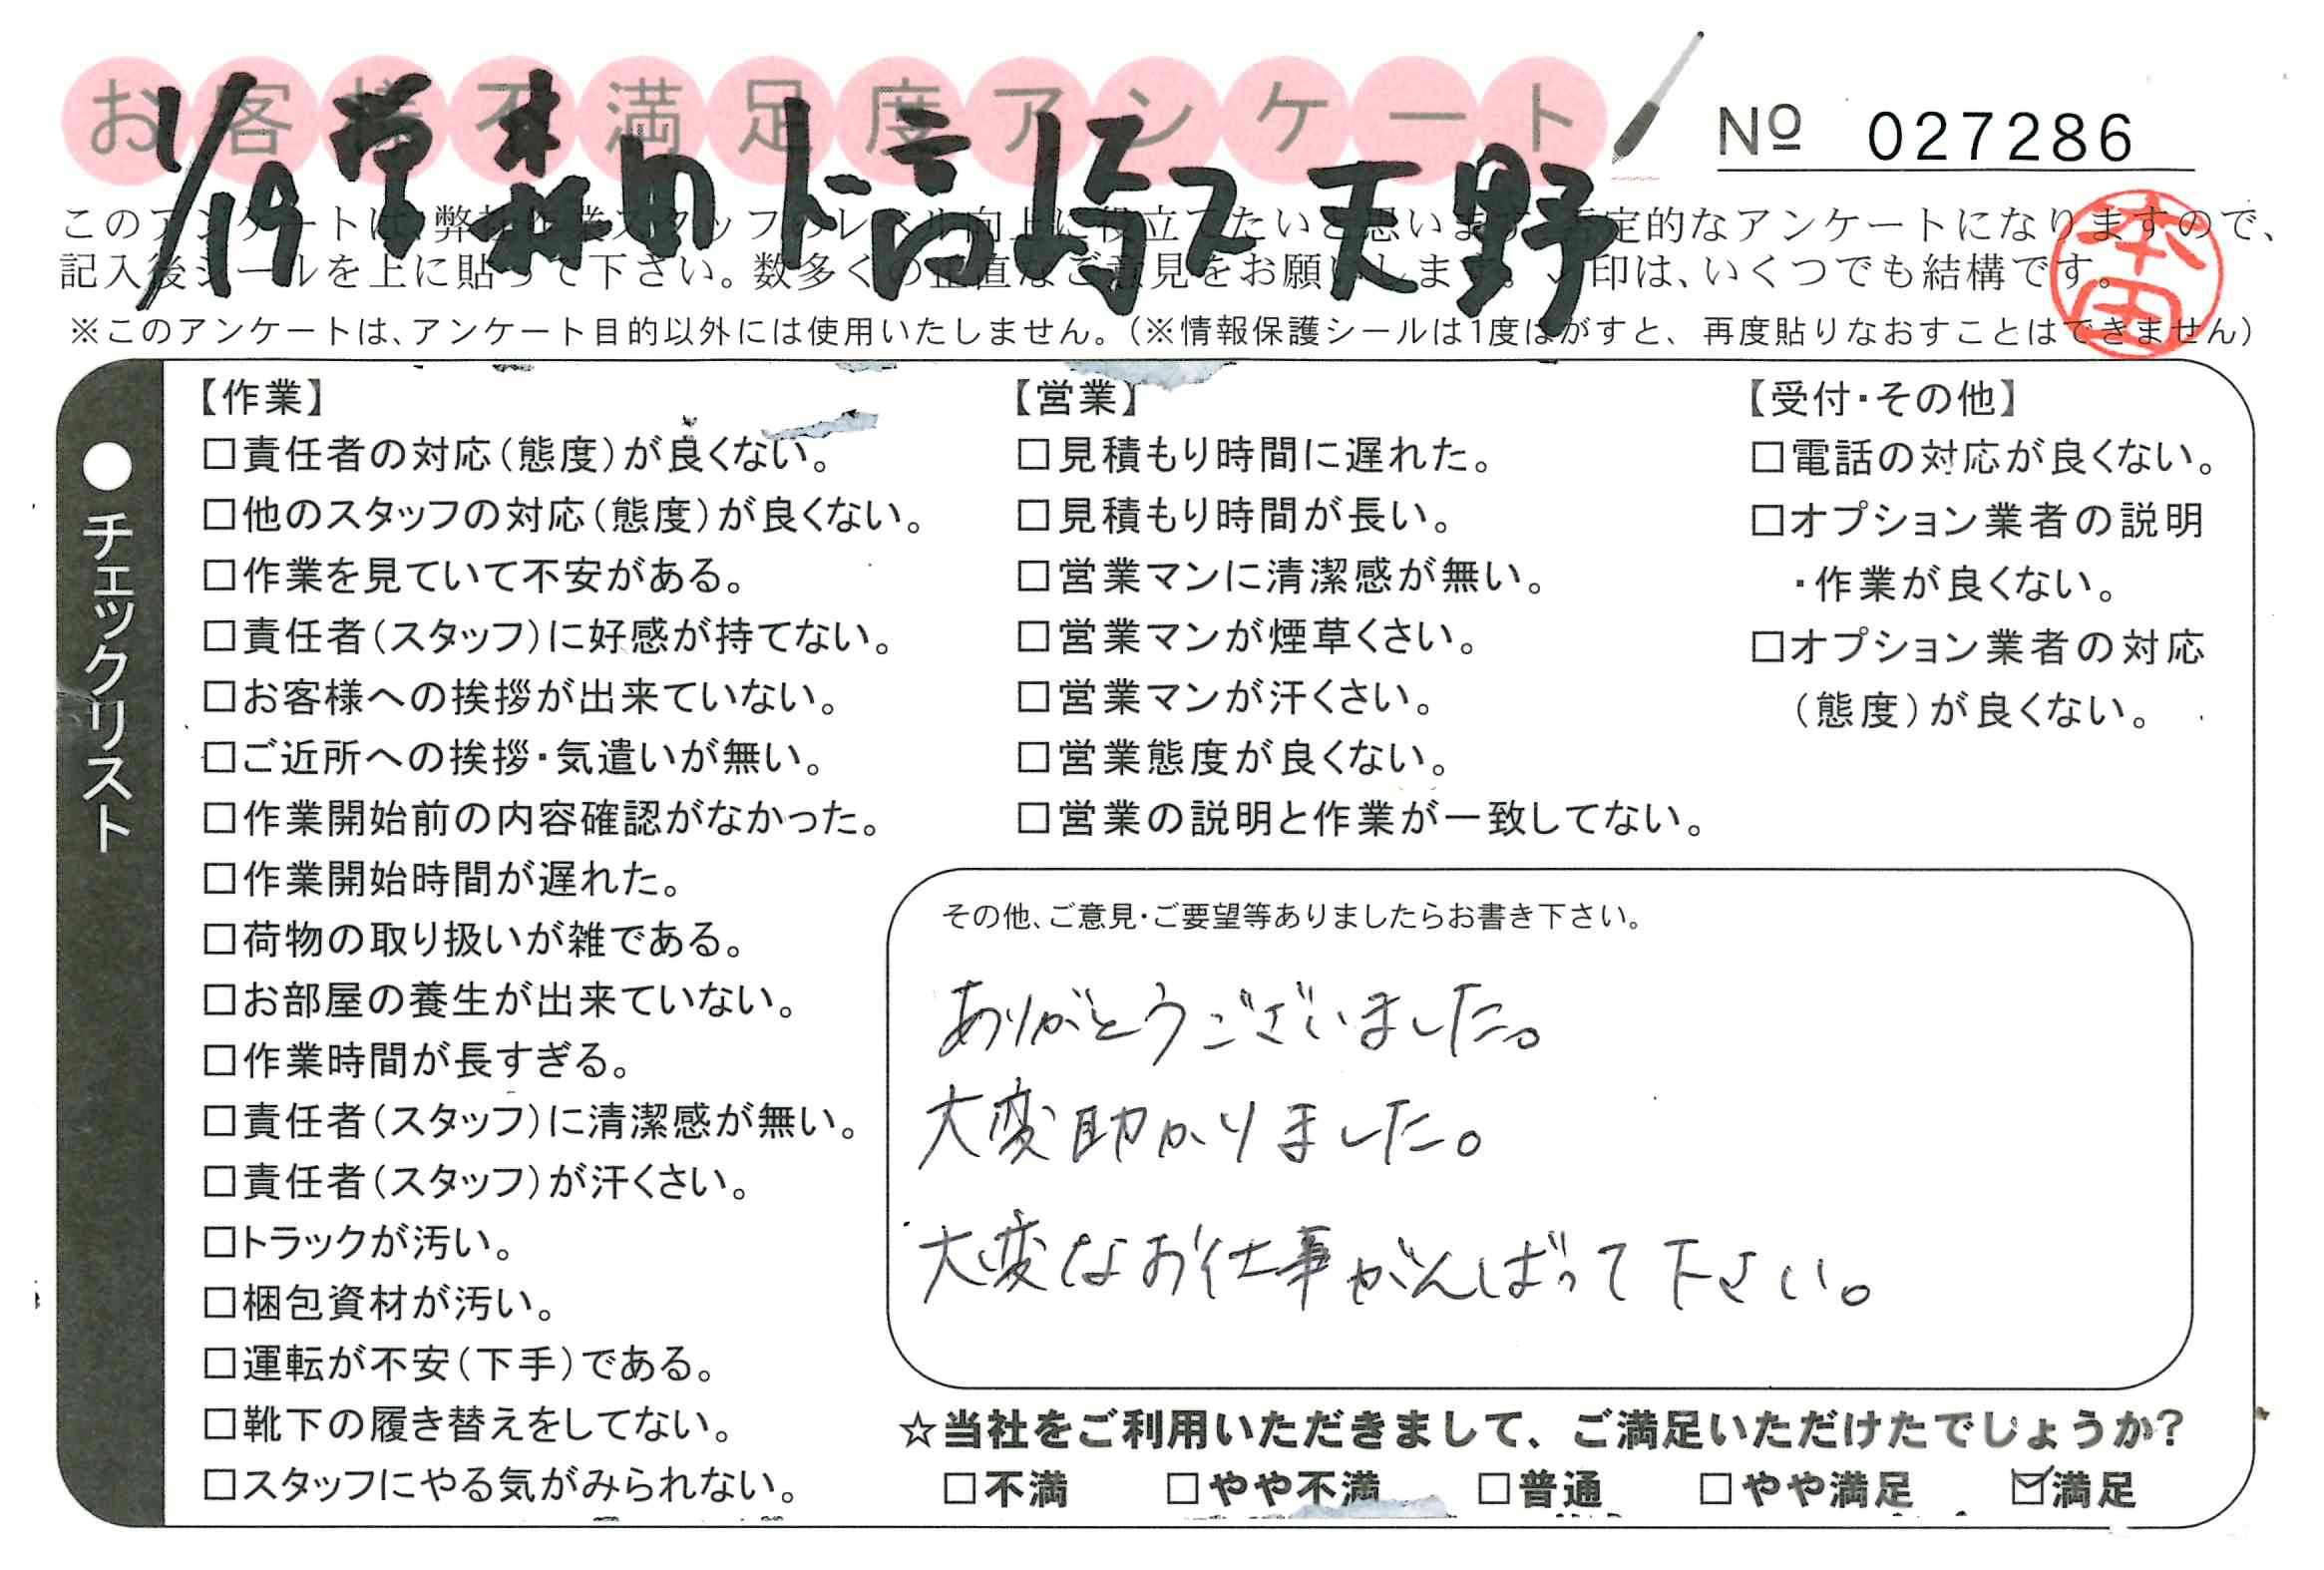 お客様不満足度アンケート
№ 027286
1/19 営 森田 ド 高崎 ス 天野
このアンケートは、弊社作業スタッフのレベル向上に役立てたいと思います。否定的なアンケートになりますので、
記入後シールを上に貼って下さい。数多くの正直なご意見をお願いします。✓印は、いくつでも結構です。
本田
※このアンケートは、アンケート目的以外には使用いたしません。（※情報保護シールは1度はがすと、再度貼りなおすことはできません）
●チェックリスト
【作業】
□責任者の対応（態度）が良くない。
□他のスタッフの対応（態度）が良くない。
□作業を見ていて不安がある。
□責任者（スタッフ）に好感が持てない。
□お客様への挨拶が出来ていない。
□ご近所への挨拶・気遣いが無い。
□作業開始前の内容確認がなかった。
□作業開始時間が遅れた。
□荷物の取り扱いが雑である。
□お部屋の養生が出来ていない。
□作業時間が長すぎる。
□責任者（スタッフ）に清潔感が無い。
□責任者（スタッフ）が汗くさい。
□トラックが汚い。
□梱包資材が汚い。
□運転が不安（下手）である。
□靴下の履き替えをしてない。
□スタッフにやる気がみられない。
【営業】
□見積もり時間に遅れた。
□見積もり時間が長い。
□営業マンに清潔感が無い。
□営業マンが煙草くさい。
□営業マンが汗くさい。
□営業態度が良くない。
□営業の説明と作業が一致してない。
【受付・その他】
□電話の対応が良くない。
□オプション業者の説明
・作業が良くない。
□オプション業者の対応
（態度）が良くない。
その他、ご意見・ご要望等ありましたらお書き下さい。
ありがとうございました。
大変助かりました。
大変なお仕事がんばって下さい。
☆当社をご利用いただきまして、ご満足いただけたでしょうか?
□不満 □やや不満 □普通 □やや満足 ☑満足